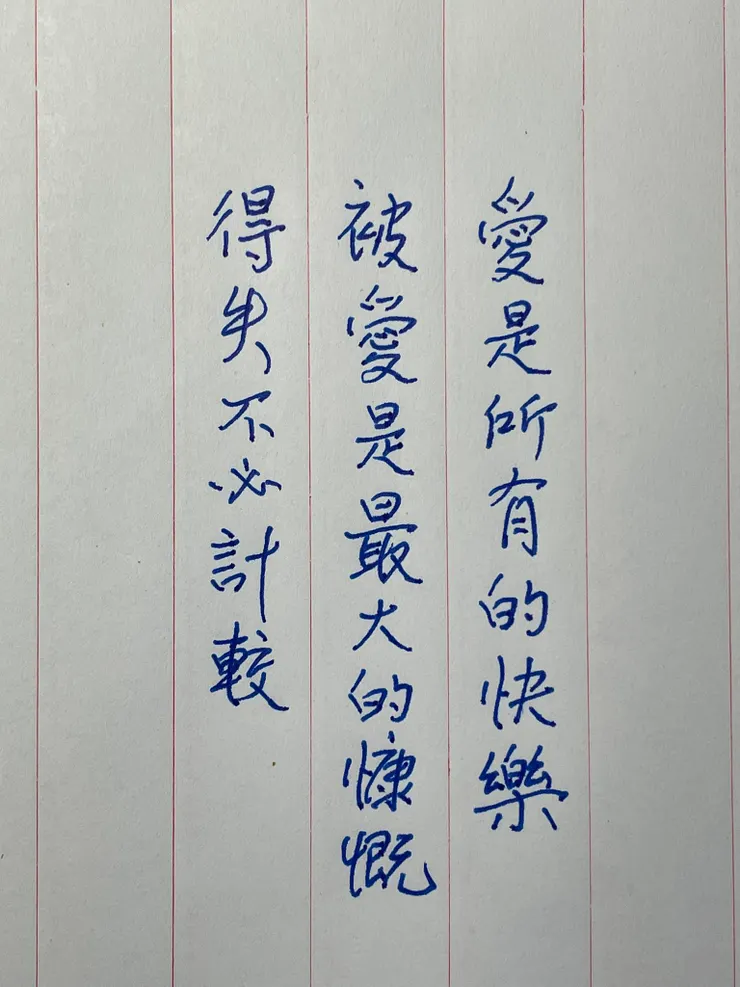 愛是所有的快樂
被愛是最大的慷慨
得失不必計較